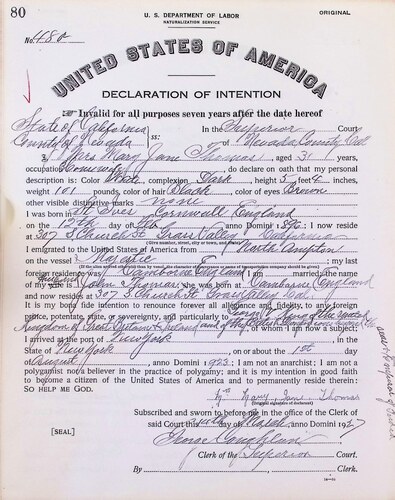 80
U. S. DEPARTMENT OF LABOR
NATURALIZATION SERVICE
ORIGINAL
No. 480
UNITED STATES OF AMERICA
DECLARATION OF INTENTION
Invalid for all purposes seven years after the date hereof
State of California
County of Nevada
ss:
In the Superior Court
of Nevada County Cal
I, Mrs Mary Jane Thomas, aged 31 years,
occupation Housewife, do declare on oath that my personal
description is: Color White, complexion Dark, height 5 feet 4 inches,
weight 101 pounds, color of hair Black, color of eyes Brown
other visible distinctive marks none
I was born in St Ives Cornwall England
on the day of, anno Domini; I now reside
at 307 Church St Grass Valley, California
(Give number, street, city or town, and State.)
I emigrated to the United States of America from South Hampton
on the vessel Majestic; my last
foreign residence was Camborne England. I am married; the name
of my husband is John Thomas; he was born at Camborne England
and now resides at 307 S Church St Grass Valley Cal.
It is my bona fide intention to renounce forever all allegiance and fidelity to any foreign
prince, potentate, state, or sovereignty, and particularly to George V King of the United
Kingdom of Great Britain & Ireland and of the British Dominions, of whom I am now a subject;
I arrived at the port of New York, in the
State of New York, on or about the 1st day
of August, anno Domini 1923; I am not an anarchist; I am not a
polygamist nor a believer in the practice of polygamy; and it is my intention in good faith
to become a citizen of the United States of America and to permanently reside therein:
SO HELP ME GOD.
Mrs Mary Jane Thomas
(Original signature of declarant.)
Subscribed and sworn to before me in the office of the Clerk of
said Court this day of March, anno Domini 1927
[SEAL]
George Coughlin
Clerk of the Superior Court.
By, Clerk.